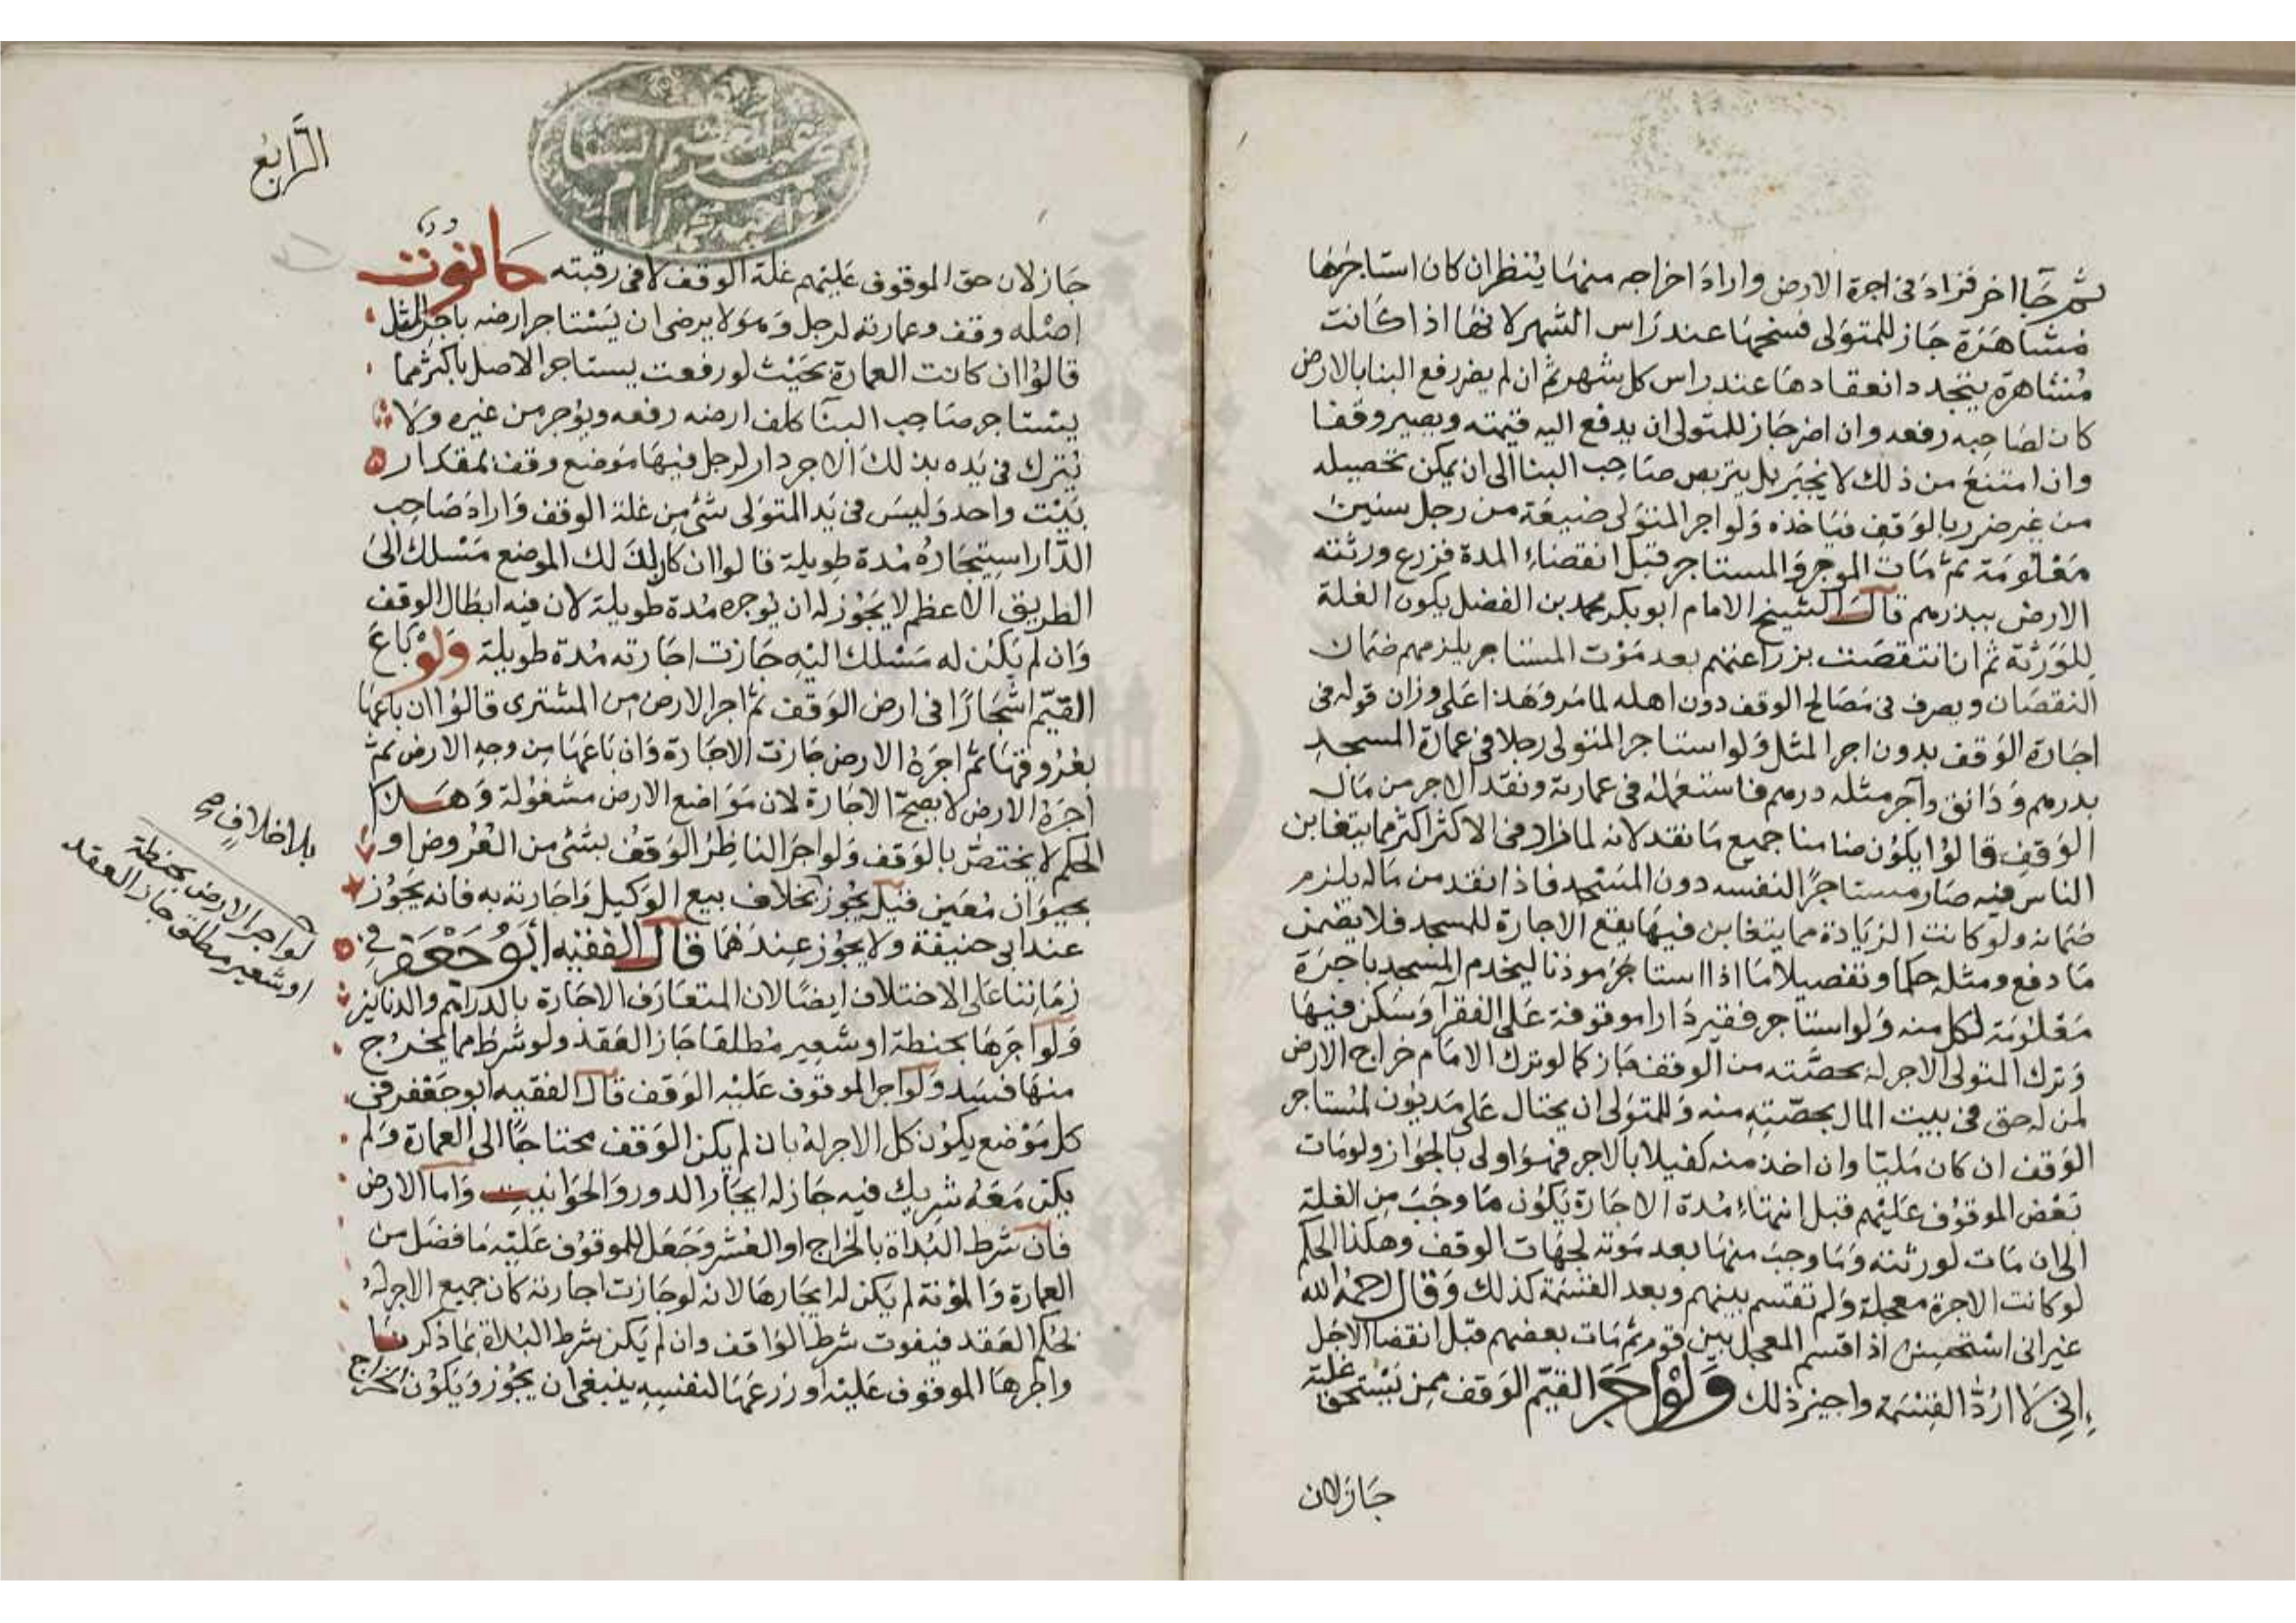 ثم جا اخر فزاد في اجرة الارض واراد اخراجه منها ينظر ان كان استاجرها
مشاهرة جاز للمتولى فسخها عند راس الشهر لانها اذا كانت
مشاهرة يتجدد انعقادها عند راس كل شهر ثم ان لم يضر رفع البنا بالارض
كان لصاحبه رفعه وان اضر جاز للمتولى ان يدفع اليه قيمته ويصير وقفا
وان امتنع من ذلك لا يجبر بل يتربص صاحب البنا الى ان يمكن تخصيله
من غير ضرر بالوقف فياخذه ولو اجر المتولى ضيعة من رجل سنين
معلومة ثم مات الموجر والمستاجر قبل انقضاء المدة فزرع ورثته
الارض ببذرهم قال الشيخ الامام ابو بكر محمد بن الفضل يكون الغلة
للورثة ثم ان انتقصت بزراعتهم بعد موت المستاجر يلزمهم ضمان
النقصان ويصرف في مصالح الوقف دون اهله لما مر وهذا على وزان قوله في
اجارة الوقف بدون اجر المثل ولو استاجر المتولى رجلا في عمارة المسجد
بدرهم ودانق وآجر مثله درهم فاستعمله في عمارته ونقد الاجر من مال
الوقف قالوا يكون ضامنا جميع ما نقد لانه لما زاد في الاكثر اكثر مما يتغابن
الناس فيه صار مستاجرًا لنفسه دون المسجد فاذا نقد من ماله يلزم
ضمانه ولو كانت الزيادة مما يتغابن فيها يقع الاجارة للمسجد فلا يضمن
ما دفع ومثله حكما وتفصيلا ما اذا استاجر موذنا ليخدم المسجد باجرة
معلومة لكل منه ولو استاجر فقير دارا موقوفة على الفقرآ وسكن فيها
وترك المتولى الاجر له بحصته من الوقف جاز كما لو ترك الامام خراج الارض
لمن له حق في بيت المال بحصته منه وللمتولى ان يحتال على مديون لمستاجر
الوقف ان كان مليا وان اخذ منه كفيلا بالاجر فهو اولى بالجواز ولو مات
بعض الموقوف عليهم قبل انتهاء مدة الاجارة يكون ما وجب من الغلة
الى ان مات لورثته وما وجب منها بعد موته لجهات الوقف وهكذا الحكم
لو كانت الاجرة معجلة ولم تقتسم بينهم وبعد القسمة كذلك وقال رحمه الله
غير انى استحسن اذا اقتسم المعجل بين قوم ثم مات بعضهم قبل انقضا الاجل
انى لا ارد القسمة واجيز ذلك ولو اجر القيم الوقف ممن يستحق غلته
جاز لان
الرابع
جاز لان حق الموقوف عليهم غلة الوقف لا في رقبته حانوت
اصله وقف وعمارته لرجل وهو لا يرضى ان يستاجر ارضه باجر المثل
قالوا ان كانت العمارة بحيث لو رفعت يستاجر الاصل باكثر مما
يستاجر صاحب البنآ كلف ارضه رفعه ويوجر من غيره ولا
يترك في يده بذلك الاجر دار لرجل فيها موضع وقف بمقدار
بيت واحد وليس في يد المتولى شئ من غلة الوقف واراد صاحب
الدار استيجاره مدة طويلة قالوا ان كان لذلك الموضع مسلك الى
الطريق الاعظم لا يجوز له ان يوجره مدة طويلة لان فيه ابطال الوقف
وان لم يكن له مسلك اليه جازت اجارته مدة طويلة ولو باع
القيم اشجارًا في ارض الوقف ثم اجر الارض من المشترى قالوا ان باعها
بعروقها ثم اجره الارض جازت الاجارة وان باعها من وجه الارض ثم
اجره الارض لا يصح الاجارة لان مواضع الارض مشغولة وهذا
الحكم لا يختص بالوقف ولو اجر الناظر الوقف بشئ من العروض او
بحيوان معين قيل يجوز بخلاف بيع الوكيل واجارته به فانه يجوز
عند ابى حنيفة ولا يجوز عندهما قال الفقيه أبو جعفر في
زماننا على الاختلاف ايضا لان المتعارف الاجارة بالدراهم والدنانير
ولو اجرها بحنطة او شعير مطلقا جاز العقد ولو شرط مما يخرج
منها فسد ولو اجر الموقوف عليه الوقف قال الفقيه ابو جعفر في
كل موضع يكون كل الاجر له بان لم يكن الوقف محتاجًا الى العمارة ولم
يكن معه شريك فيه جاز له ايجار الدور والحوانيت واما الارض
فان شرط البداة بالخراج او العشر وجعل للموقوف عليه ما فضل من
العمارة والمؤنة لم يكن له ايجارها لانه لو جازت اجارته كان جميع الاجر له
بحكم العقد فيفوت شرط الواقف وان لم يكن شرط البداة بما ذكرنا
واجرها الموقوف عليه او زرعها لنفسه ينبغى ان يجوز ويكون الخراج
بلا خلاف صح
لو آجر الارض بحنطة
او شعير مطلق جاز العقد